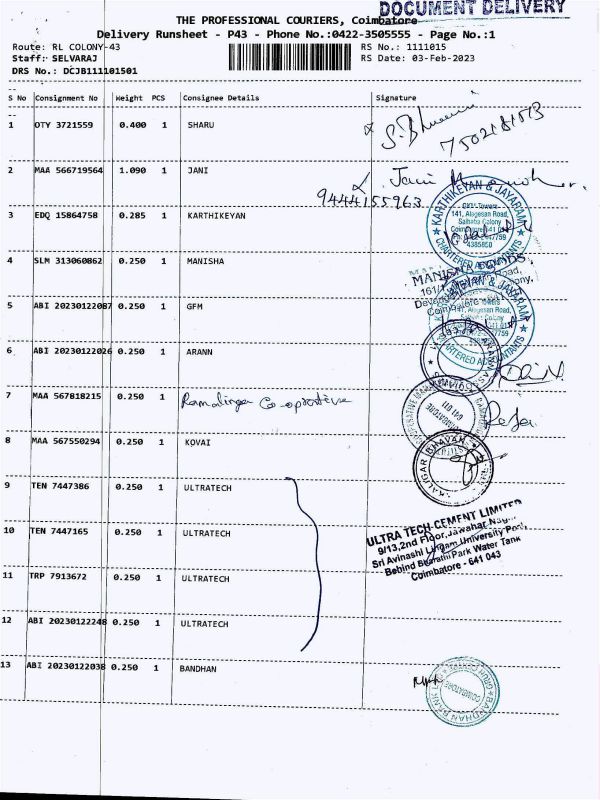 DOCUMENT DELIVERY
THE PROFESSIONAL COURIERS, Coimbatore
Delivery Runsheet - P43 - Phone No.:0422-3505555 - Page No.:1
Route: RL COLONY-43
RS No.: 1111015
Staff: SELVARAJ
RS Date: 03-Feb-2023
DRS No.: DCJB111101501
S No Consignment No Weight PCS Consignee Details Signature
1 OTY 3721559 0.400 1 SHARU
7502181513
2 MAA 566719564 1.090 1 JANI
Jani
9444155963
3 EDQ 15864758 0.285 1 KARTHIKEYAN
KARTHIKEYAN & JAYARAM
141, Alagesan Road,
Saibaba Colony
4385850
CHARTERED ACCOUNTANTS
4 SLM 313060862 0.250 1 MANISHA
5 ABI 20230122087 0.250 1 GFM
6 ABI 20230122026 0.250 1 ARANN
7 MAA 567818215 0.250 1 Ramalinga Co-operative
COIMBATORE
641 011
8 MAA 567550294 0.250 1 KOVAI
9 TEN 7447386 0.250 1 ULTRATECH
ULTRA TECH CEMENT LIMITED
9/13,2nd Floor,Jawahar Nagar
10 TEN 7447165 0.250 1 ULTRATECH
Sri Avinashi Lingam University Post,
Behind Bharathi Park Water Tank
Coimbatore - 641 043
11 TRP 7913672 0.250 1 ULTRATECH
12 ABI 20230122248 0.250 1 ULTRATECH
13 ABI 20230122038 0.250 1 BANDHAN
BANDHAN BANK
COIMBATORE